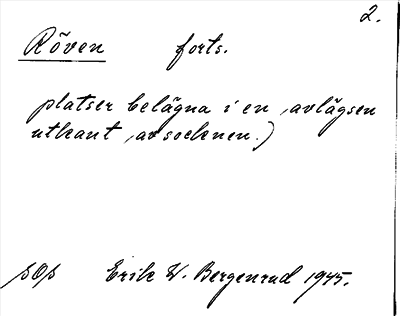 2.
Röven forts.
platser belägna i en avlägsen
utkant av socknen.)
sOs Erik W. Bergenrud 1945.